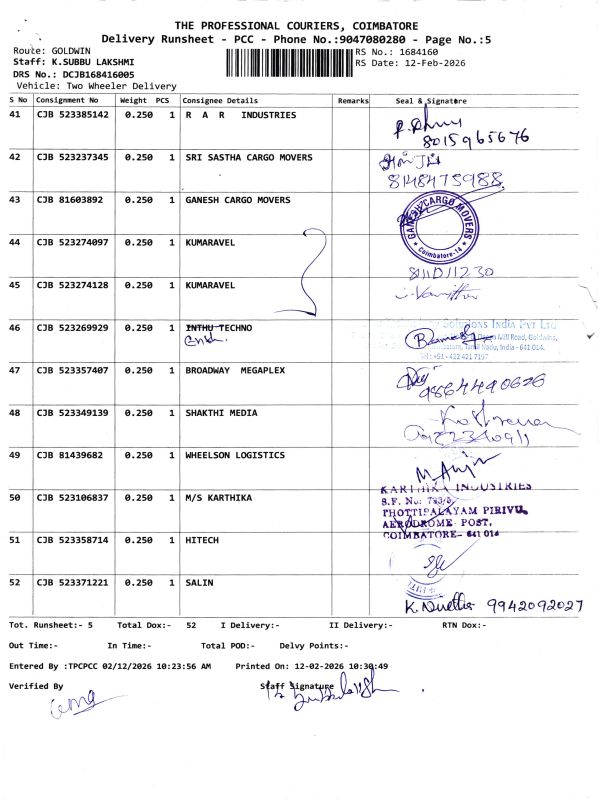 THE PROFESSIONAL COURIERS, COIMBATORE
Delivery Runsheet - PCC - Phone No.:9047080280 - Page No.:5
Route: GOLDWIN RS No.: 1684160
Staff: K.SUBBU LAKSHMI RS Date: 12-Feb-2026
DRS No.: DCJB168416005
Vehicle: Two Wheeler Delivery
S No Consignment No Weight PCS Consignee Details Remarks Seal & Signature
41 CJB 523385142 0.250 1 R A R INDUSTRIES
8015965676
42 CJB 523237345 0.250 1 SRI SASTHA CARGO MOVERS
8148475988
43 CJB 81603892 0.250 1 GANESH CARGO MOVERS
GANESH CARGO MOVERS
Coimbatore-14
44 CJB 523274097 0.250 1 KUMARAVEL
45 CJB 523274128 0.250 1 KUMARAVEL
46 CJB 523269929 0.250 1 INTHU TECHNO
Solutions India Pvt Ltd
Mill Road, Goldwins,
Tamil Nadu, India - 641 014.
Tel: +91 - 422 421 7197
47 CJB 523357407 0.250 1 BROADWAY MEGAPLEX
9864490626
48 CJB 523349139 0.250 1 SHAKTHI MEDIA
49 CJB 81439682 0.250 1 WHEELSON LOGISTICS
50 CJB 523106837 0.250 1 M/S KARTHIKA
KARTHIKA INDUSTRIES
THOTTIPALAYAM PIRIVU,
AERODROME POST,
COIMBATORE- 641 014
51 CJB 523358714 0.250 1 HITECH
52 CJB 523371221 0.250 1 SALIN
9942092027
Tot. Runsheet:- 5 Total Dox:- 52 I Delivery:- II Delivery:- RTN Dox:-
Out Time:- In Time:- Total POD:- Delvy Points:-
Entered By :TPCPCC 02/12/2026 10:23:56 AM Printed On: 12-02-2026 10:30:49
Verified By Staff Signature